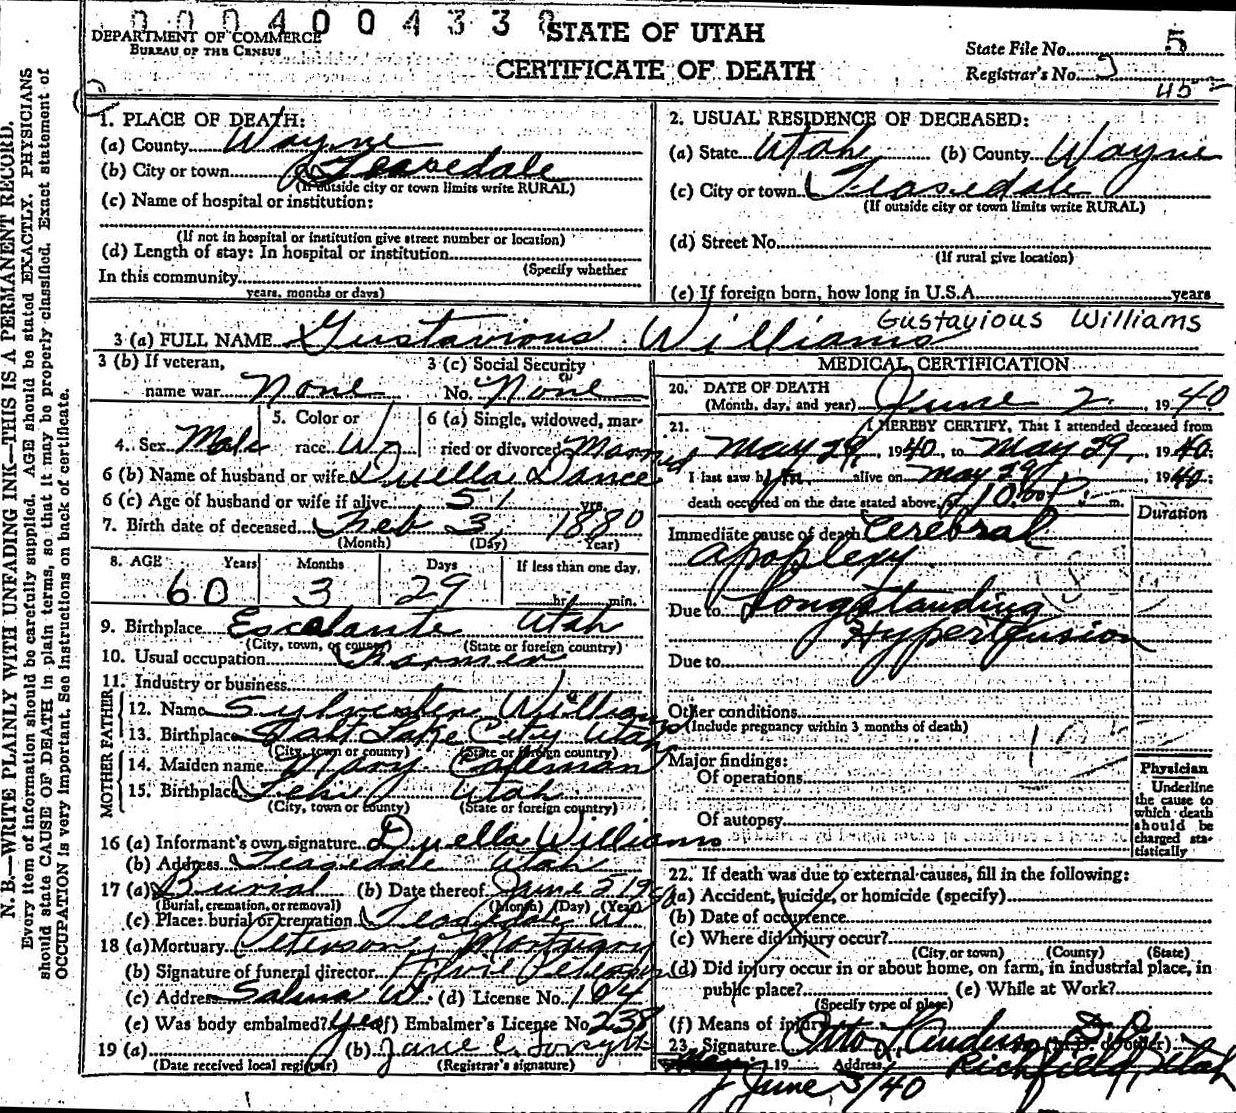 0004004330
DEPARTMENT OF COMMERCE
BUREAU OF THE CENSUS
STATE OF UTAH
CERTIFICATE OF DEATH
State File No. 5
Registrar's No.
N. B.—WRITE PLAINLY WITH UNFADING INK—THIS IS A PERMANENT RECORD.
Every item of information should be carefully supplied. AGE should be stated EXACTLY. PHYSICIANS
should state CAUSE OF DEATH in plain terms, so that it may be properly classified. Exact statement of
OCCUPATION is very important. See instructions on back of certificate.
1. PLACE OF DEATH:
(a) County Wayne
(b) City or town Teasedale
(If outside city or town limits write RURAL)
(c) Name of hospital or institution:
(If not in hospital or institution give street number or location)
(d) Length of stay: In hospital or institution
(Specify whether
In this community
years, months or days)
2. USUAL RESIDENCE OF DECEASED:
(a) State Utah (b) County Wayne
(c) City or town Teasedale
(If outside city or town limits write RURAL)
(d) Street No.
(If rural give location)
(e) If foreign born, how long in U.S.A. years
3 (a) FULL NAME Gustavious Williams Gustavious Williams
3 (b) If veteran,
name war None
3 (c) Social Security
No. None
4. Sex Male
5. Color or
race W
6 (a) Single, widowed, mar-
ried or divorced Married
6 (b) Name of husband or wife Duella Dance
6 (c) Age of husband or wife if alive 51 yrs.
7. Birth date of deceased Feb 3, 1880
(Month) (Day) Year)
8. AGE Years Months Days If less than one day,
60 3 29 hr. min.
9. Birthplace Escalante Utah
(City, town, or county) (State or foreign country)
10. Usual occupation Farmer
11. Industry or business
FATHER
12. Name Sylvester Williams
13. Birthplace Salt Lake City Utah
(City, town or county) (State or foreign country)
MOTHER
14. Maiden name Mary Coleman
15. Birthplace Lehi Utah
(City, town or county) (State or foreign country)
16 (a) Informant's own signature Duella Williams
(b) Address Teasedale Utah
17 (a) Burial (b) Date thereof June 5 1940
(Burial, cremation, or removal) (Month) (Day) (Year)
(c) Place: burial or cremation Teasedale Ut
18 (a) Mortuary Petersons Mortuary
(b) Signature of funeral director Petersen
(c) Address Salina Ut. (d) License No. 104
(e) Was body embalmed? yes (f) Embalmer's License No. 238
19 (a) (b) Jane C. Forsyth
(Date received local registrar) (Registrar's signature)
MEDICAL CERTIFICATION
20. DATE OF DEATH
(Month, day, and year) June 2, 1940
21. I HEREBY CERTIFY, That I attended deceased from
May 29, 1940, to May 29, 1940;
I last saw him alive on May 29, 1940;
death occurred on the date stated above, at 10:00 P. m.
Duration
Immediate cause of death Cerebral
apoplexy
Due to Longstanding
Hypertension
Due to
Other conditions
(Include pregnancy within 3 months of death)
Major findings:
Of operations
Of autopsy
Physician
Underline
the cause to
which death
should be
charged sta-
tistically
22. If death was due to external causes, fill in the following:
(a) Accident, suicide, or homicide (specify)
(b) Date of occurrence
(c) Where did injury occur?
(City or town) (County) (State)
(d) Did injury occur in or about home, on farm, in industrial place, in
public place? (e) While at Work?
(Specify type of place)
(f) Means of injury
23. Signature Otto Anderson D.O. (M.D. or other)
19 Address Richfield, Utah
June 3/40